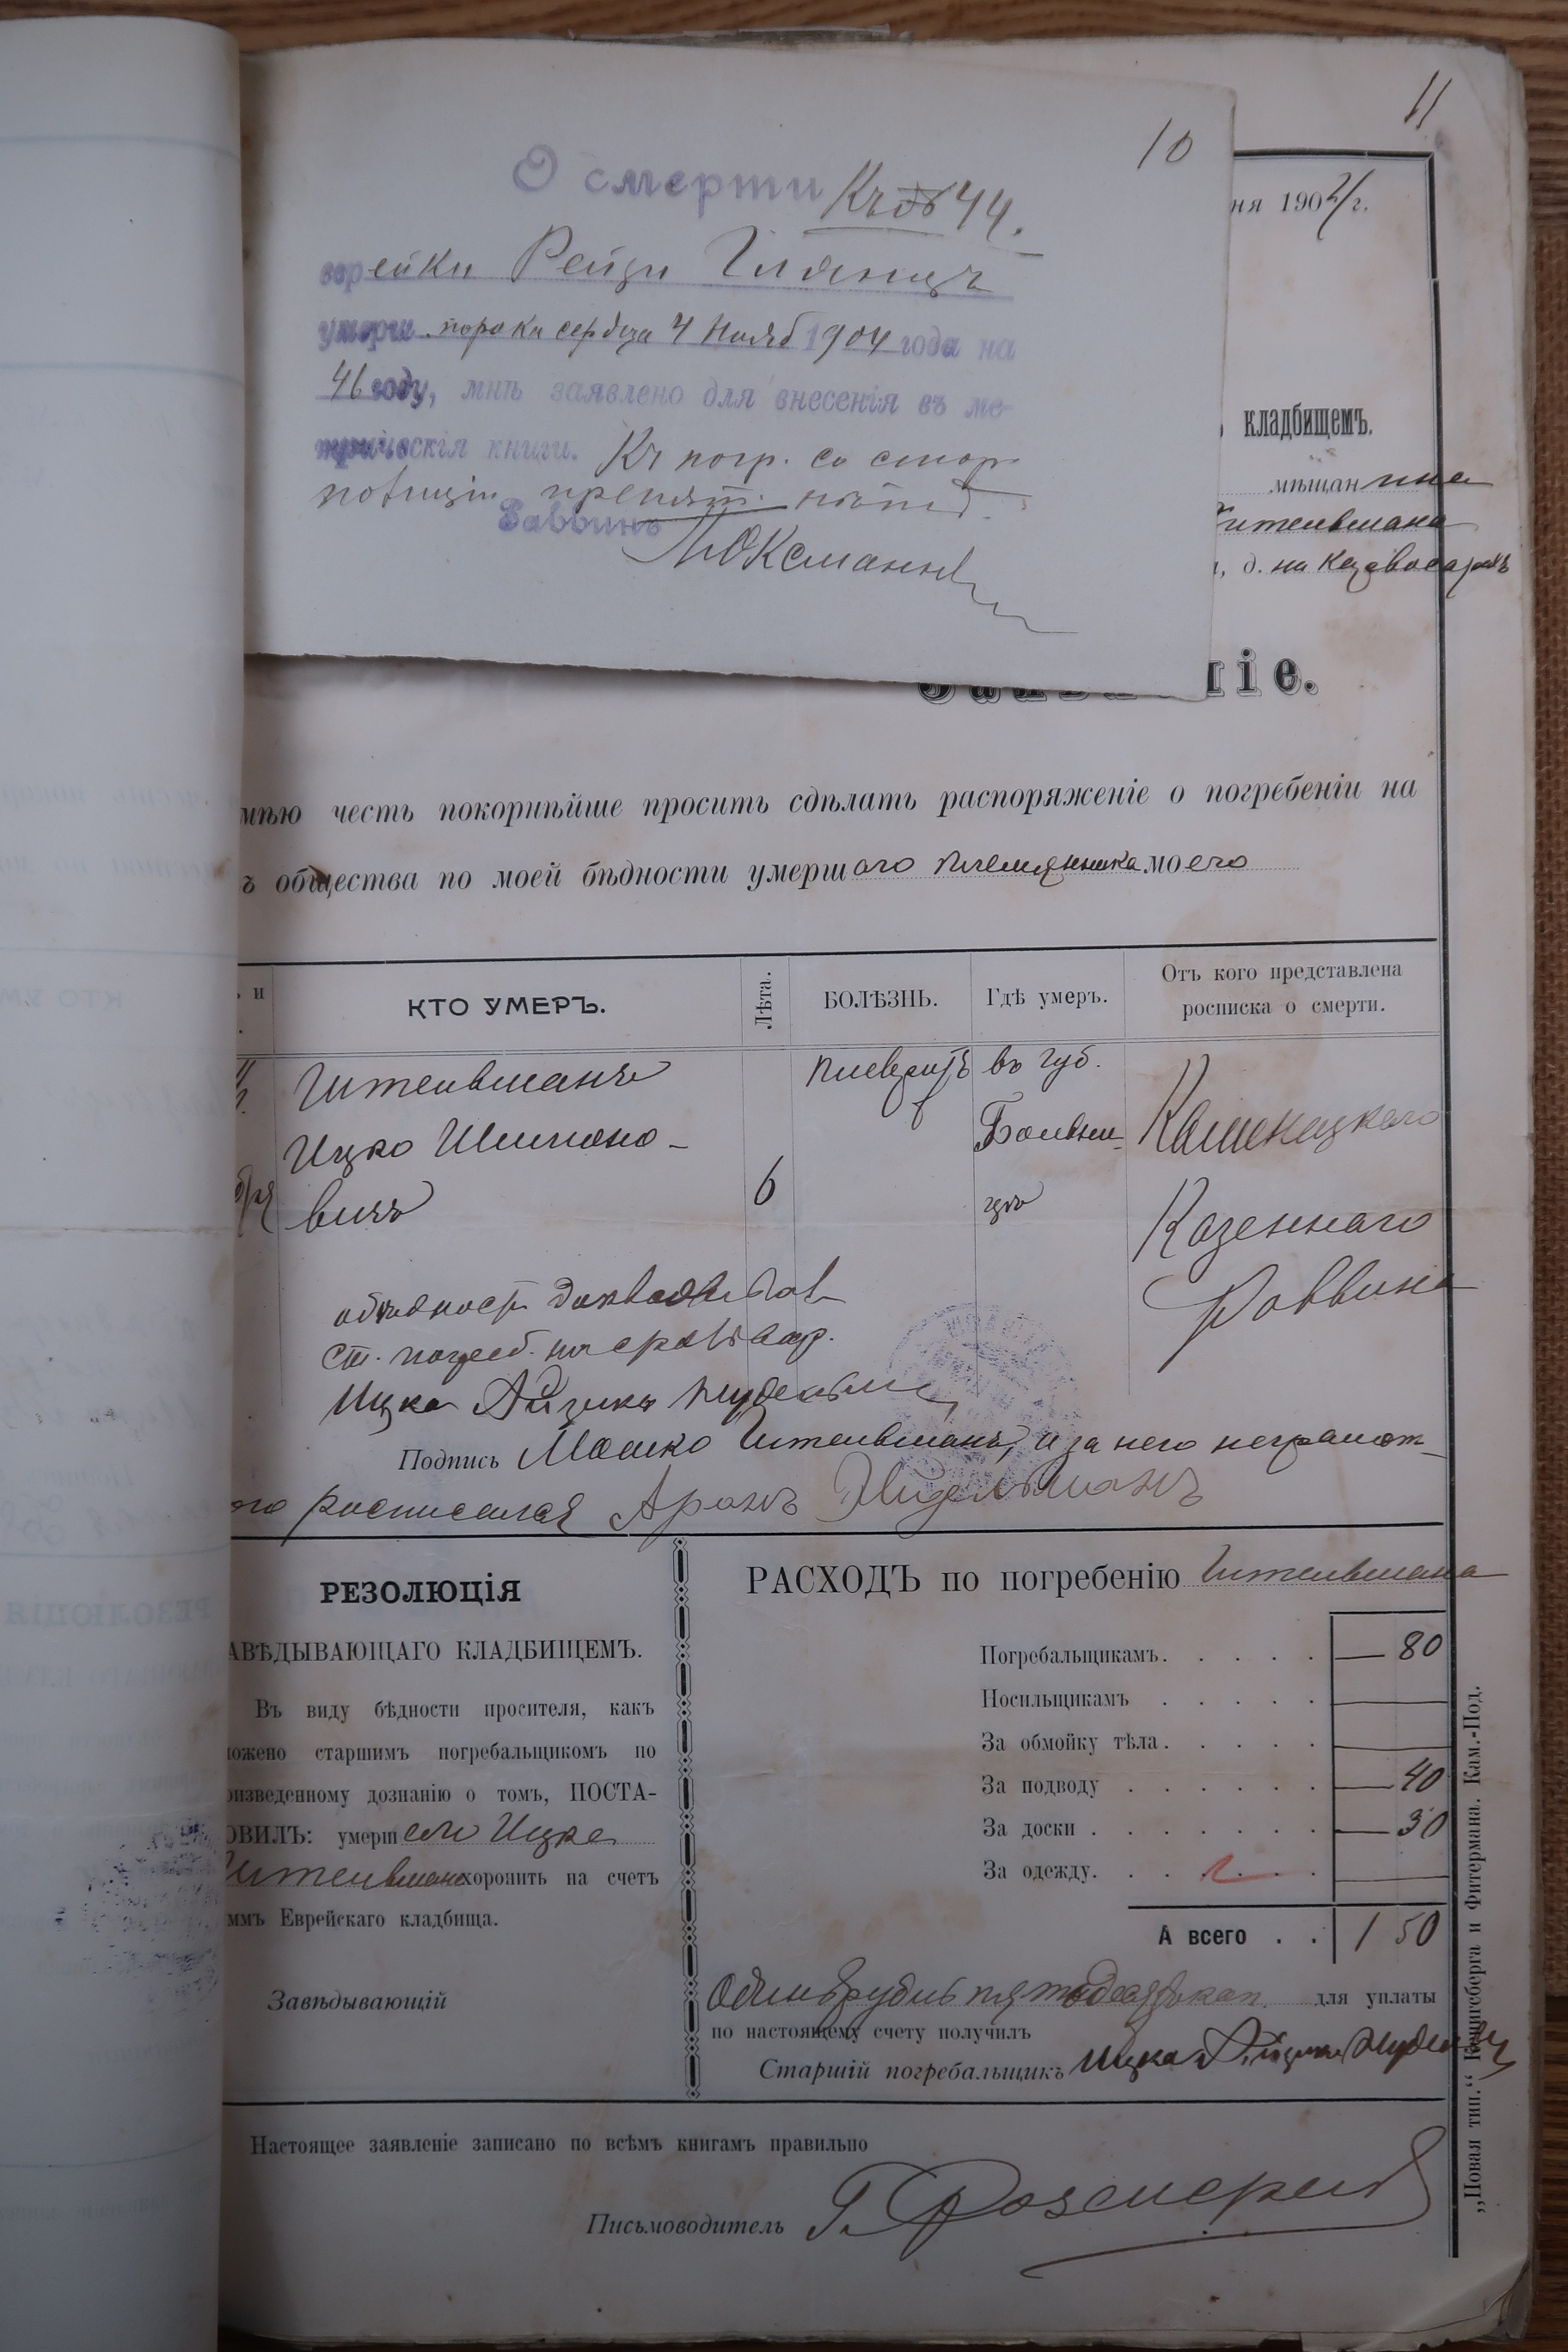 11
10
О смерти Къ № 44.
еврейки Рейзи Глянцъ
умерш. порока сердца 4 Нояб 1904 года на
46 году, мнѣ заявлено для внесенія въ ме-
трическія книги. Къ погр. со стор.
полиціи препят. нѣтъ
Раввинъ
ня 1904 г.
кладбищемъ.
мѣщанина
Гительмана
, д. на
ніе.
мѣю честь покорнѣйше просить сдѣлать распоряженіе о погребеніи на
ъ общества по моей бѣдности умершаго племянника моего
ь и КТО УМЕРЪ. Лѣта. БОЛѢЗНЬ. Гдѣ умеръ. Отъ кого представлена
росписка о смерти.
Гительманъ плевритъ въ губ.
Ицко Шимоно- Больни- Каменецкаго
вичъ 6 цѣ Казеннаго
Раввина
о бѣдности
ст. погреб.
Ицко Айзикъ
Подпись Мошко Гительманъ, а за него неграмот-
ого росписался Аронъ
РЕЗОЛЮЦІЯ
АВѢДЫВАЮЩАГО КЛАДБИЩЕМЪ.
Въ виду бѣдности просителя, какъ
ложено старшимъ погребальщикомъ по
оизведенному дознанію о томъ, ПОСТА-
ОВИЛЪ: умершаго Ицка
Гительмана хоронить на счетъ
ммъ Еврейскаго кладбища.
Завѣдывающій
РАСХОДЪ по погребенію Гительмана
Погребальщикамъ. . . . . — 80
Носильщикамъ . . . . . —
За обмойку тѣла. . . . . —
За подводу . . . . . . — 40
За доски . . . . . . . — 30
За одежду. . . . . . —
А всего . . 1 50
Одинъ рубль пятьдесятъ коп. для уплаты
по настоящему счету получилъ
Старшій погребальщикъ Ицко Айзикъ
Настоящее заявленіе записано по всѣмъ книгамъ правильно
Письмоводитель
„Новая тип.“ Ландсберга и Фитермана. Кам.-Под.